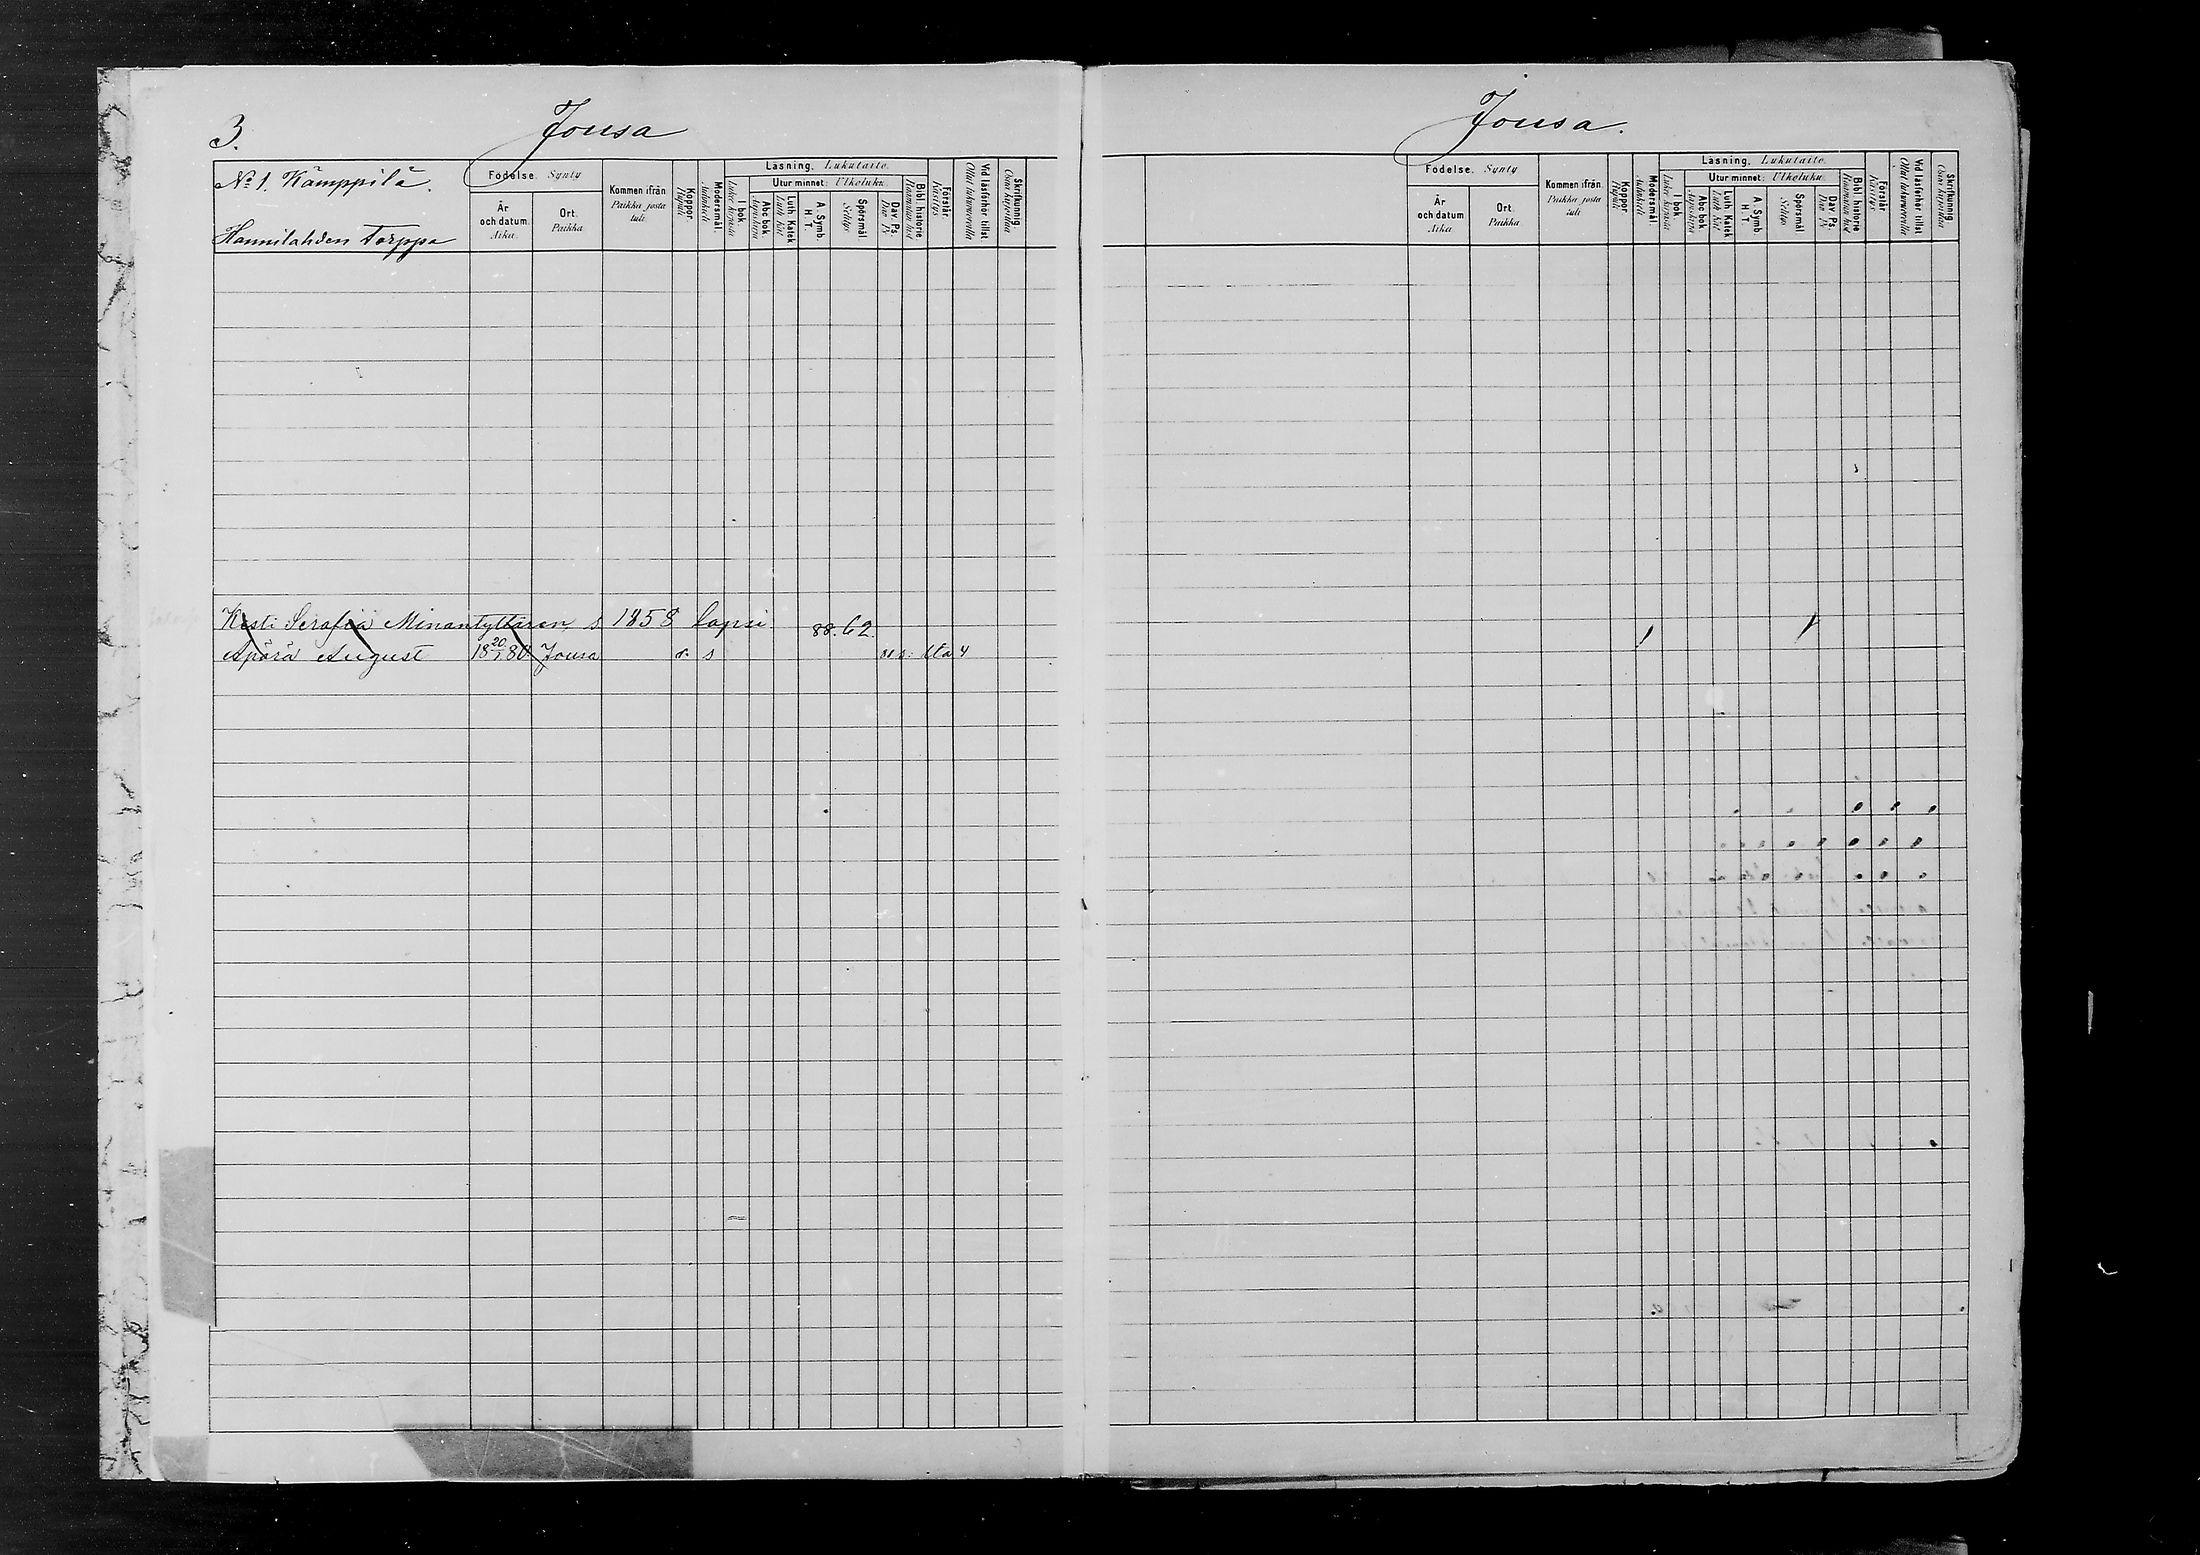 3.
Jousa
Jousa.
No 1. Kämppilä.
Hannilahden Torppa
Födelse. Synty
År och datum. Aika.
Ort. Paikka.
Kommen ifrån Paikka josta tuli.
Koppor Rupuli
Modersmål. Äidinkieli
Läsning. Lukutaito.
I bok Lukee kirjasta
Utur minnet: Ulkoluku.
Abc bok Aapiskirja
Luth Katek Luth Kat
A. Symb. H. T.
Spörsmål Selitys
Dav. Ps. Dav Ps
Bibl. historie
Förstår Käsitys
Vid läsförhör tillst Ollut lukumerellä
Skrifkunnig.
Kesti Serafia Minantyttären s 1858 lapsi
88. 62.
Apärä August 18 20/7 80 Jousa r. s
Födelse. Synty
År och datum Aika
Ort. Paikka
Kommen ifrån. Paikka josta tuli
Koppor Rupuli
Modersmål. Äidinkieli
Läsning. Lukutaito.
I bok Lukee kirjasta
Utur minnet: Ulkoluku.
Abc bok. Aapiskirja
Luth Katek Luth Kat
A. Symb. H. T.
Spörsmål Selitys
Dav. Ps. Dav Ps
Bibl. historie
Förstår Käsitys
Vid läsförhör tillst
Skrifkunnig